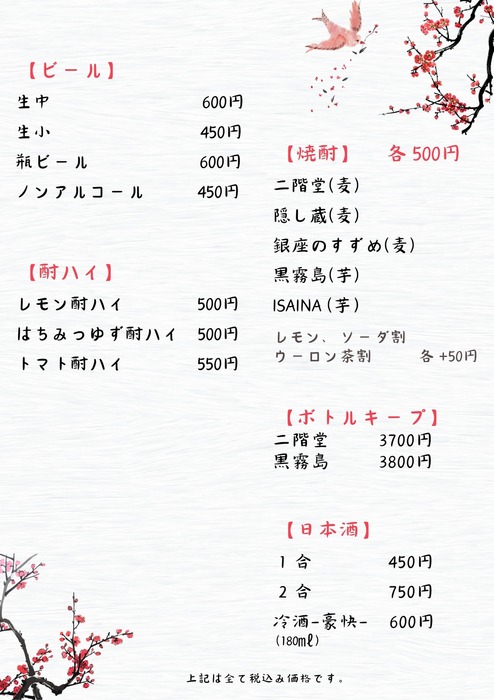 【ビール】
生中 600円
生小 450円
瓶ビール 600円
ノンアルコール 450円
【酎ハイ】
レモン酎ハイ 500円
はちみつゆず酎ハイ 500円
トマト酎ハイ 550円
【焼酎】 各500円
二階堂(麦)
隠し蔵(麦)
銀座のすずめ(麦)
黒霧島(芋)
ISAINA (芋)
レモン、ソーダ割
ウーロン茶割 各+50円
【ボトルキープ】
二階堂 3700円
黒霧島 3800円
【日本酒】
1合 450円
2合 750円
冷酒-豪快- 600円
(180mℓ)
上記は全て税込み価格です。